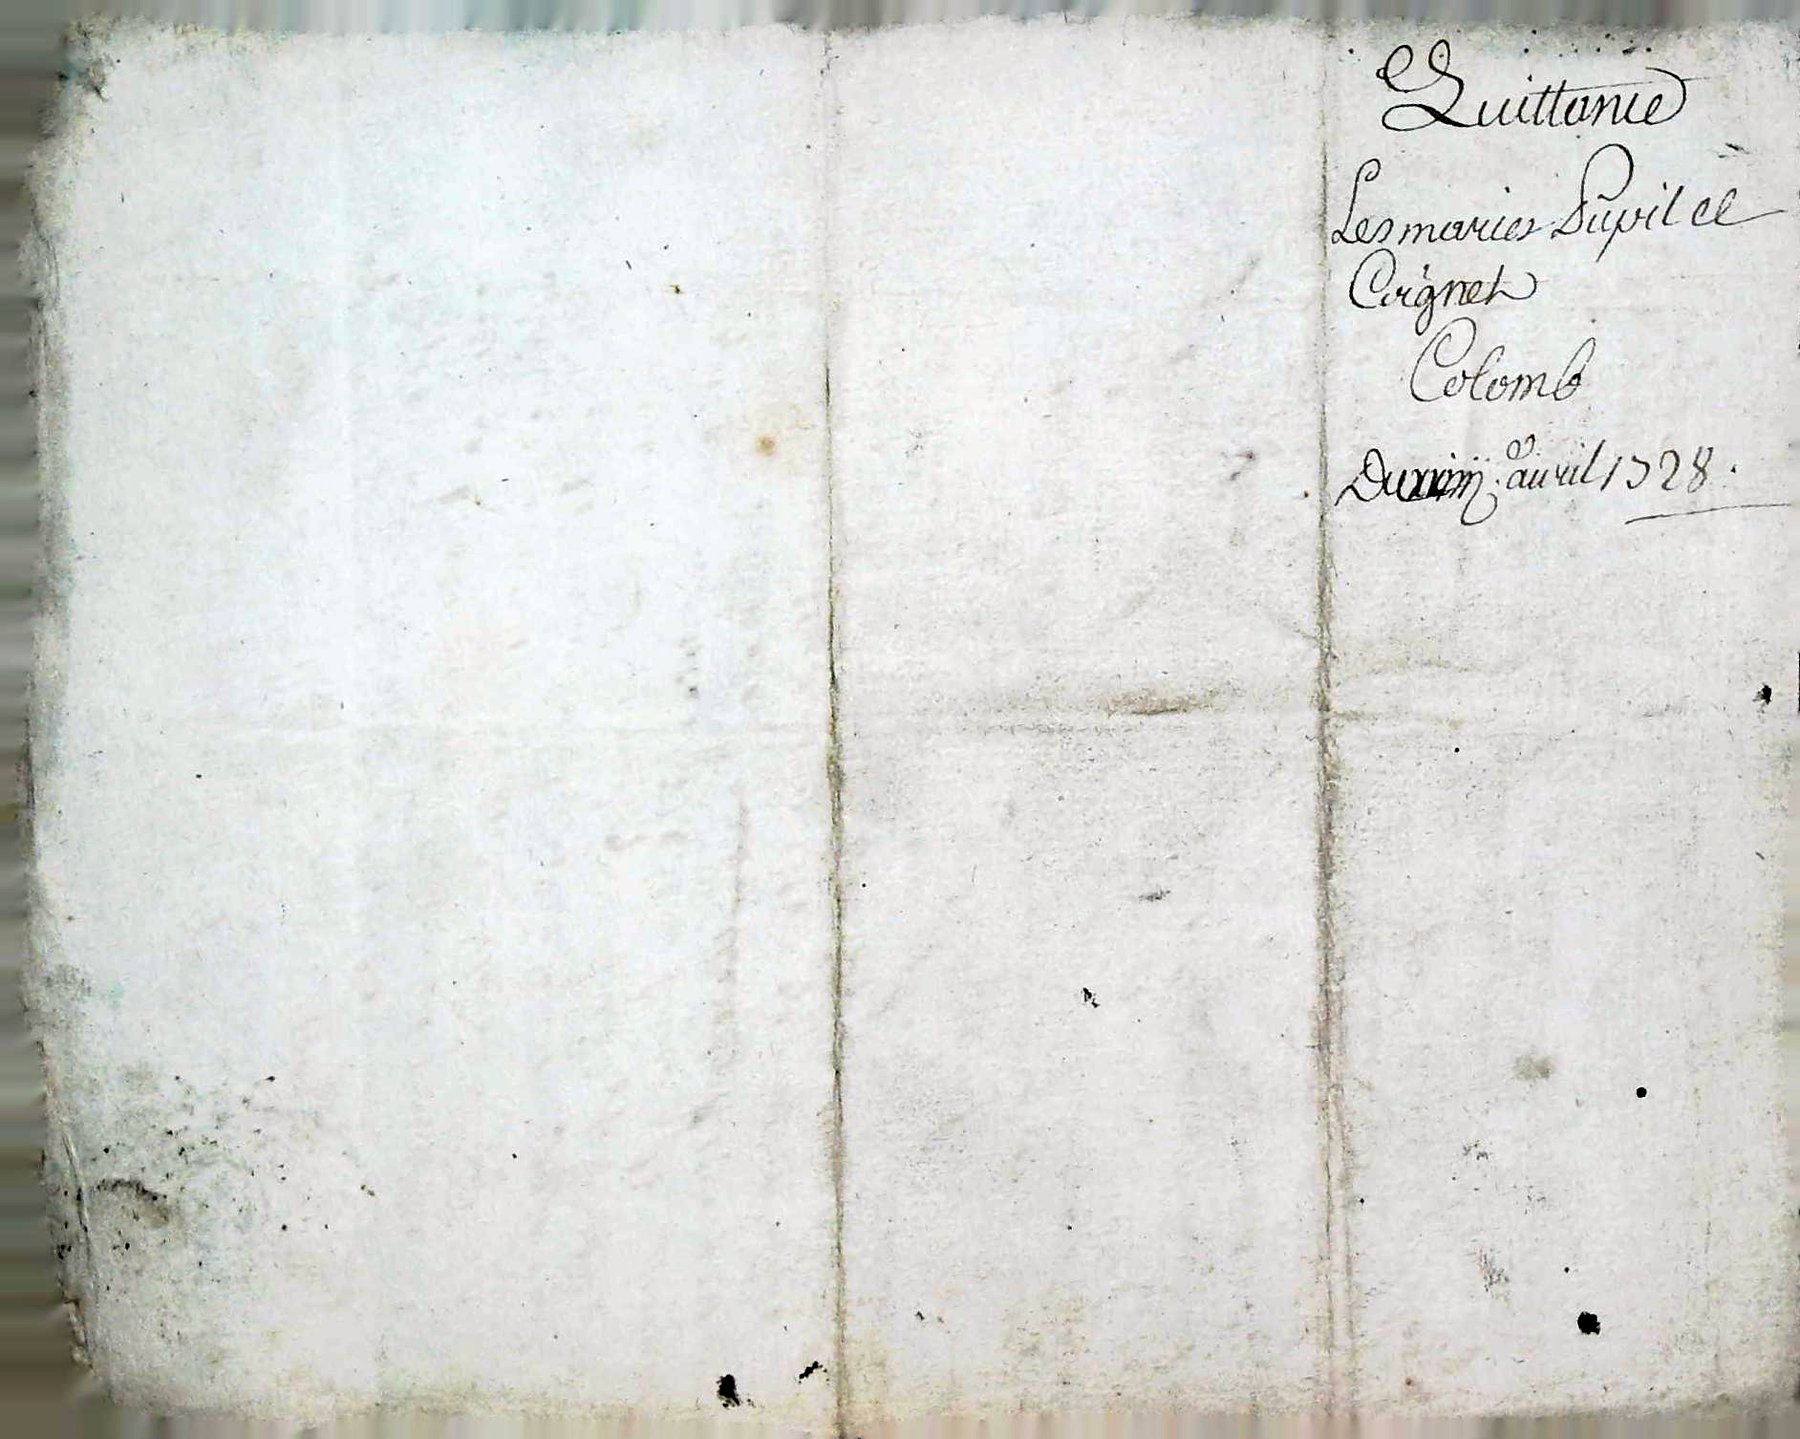 Quittance
Les maries Pupil et
Coignet
Colomb
Du avril 1728.